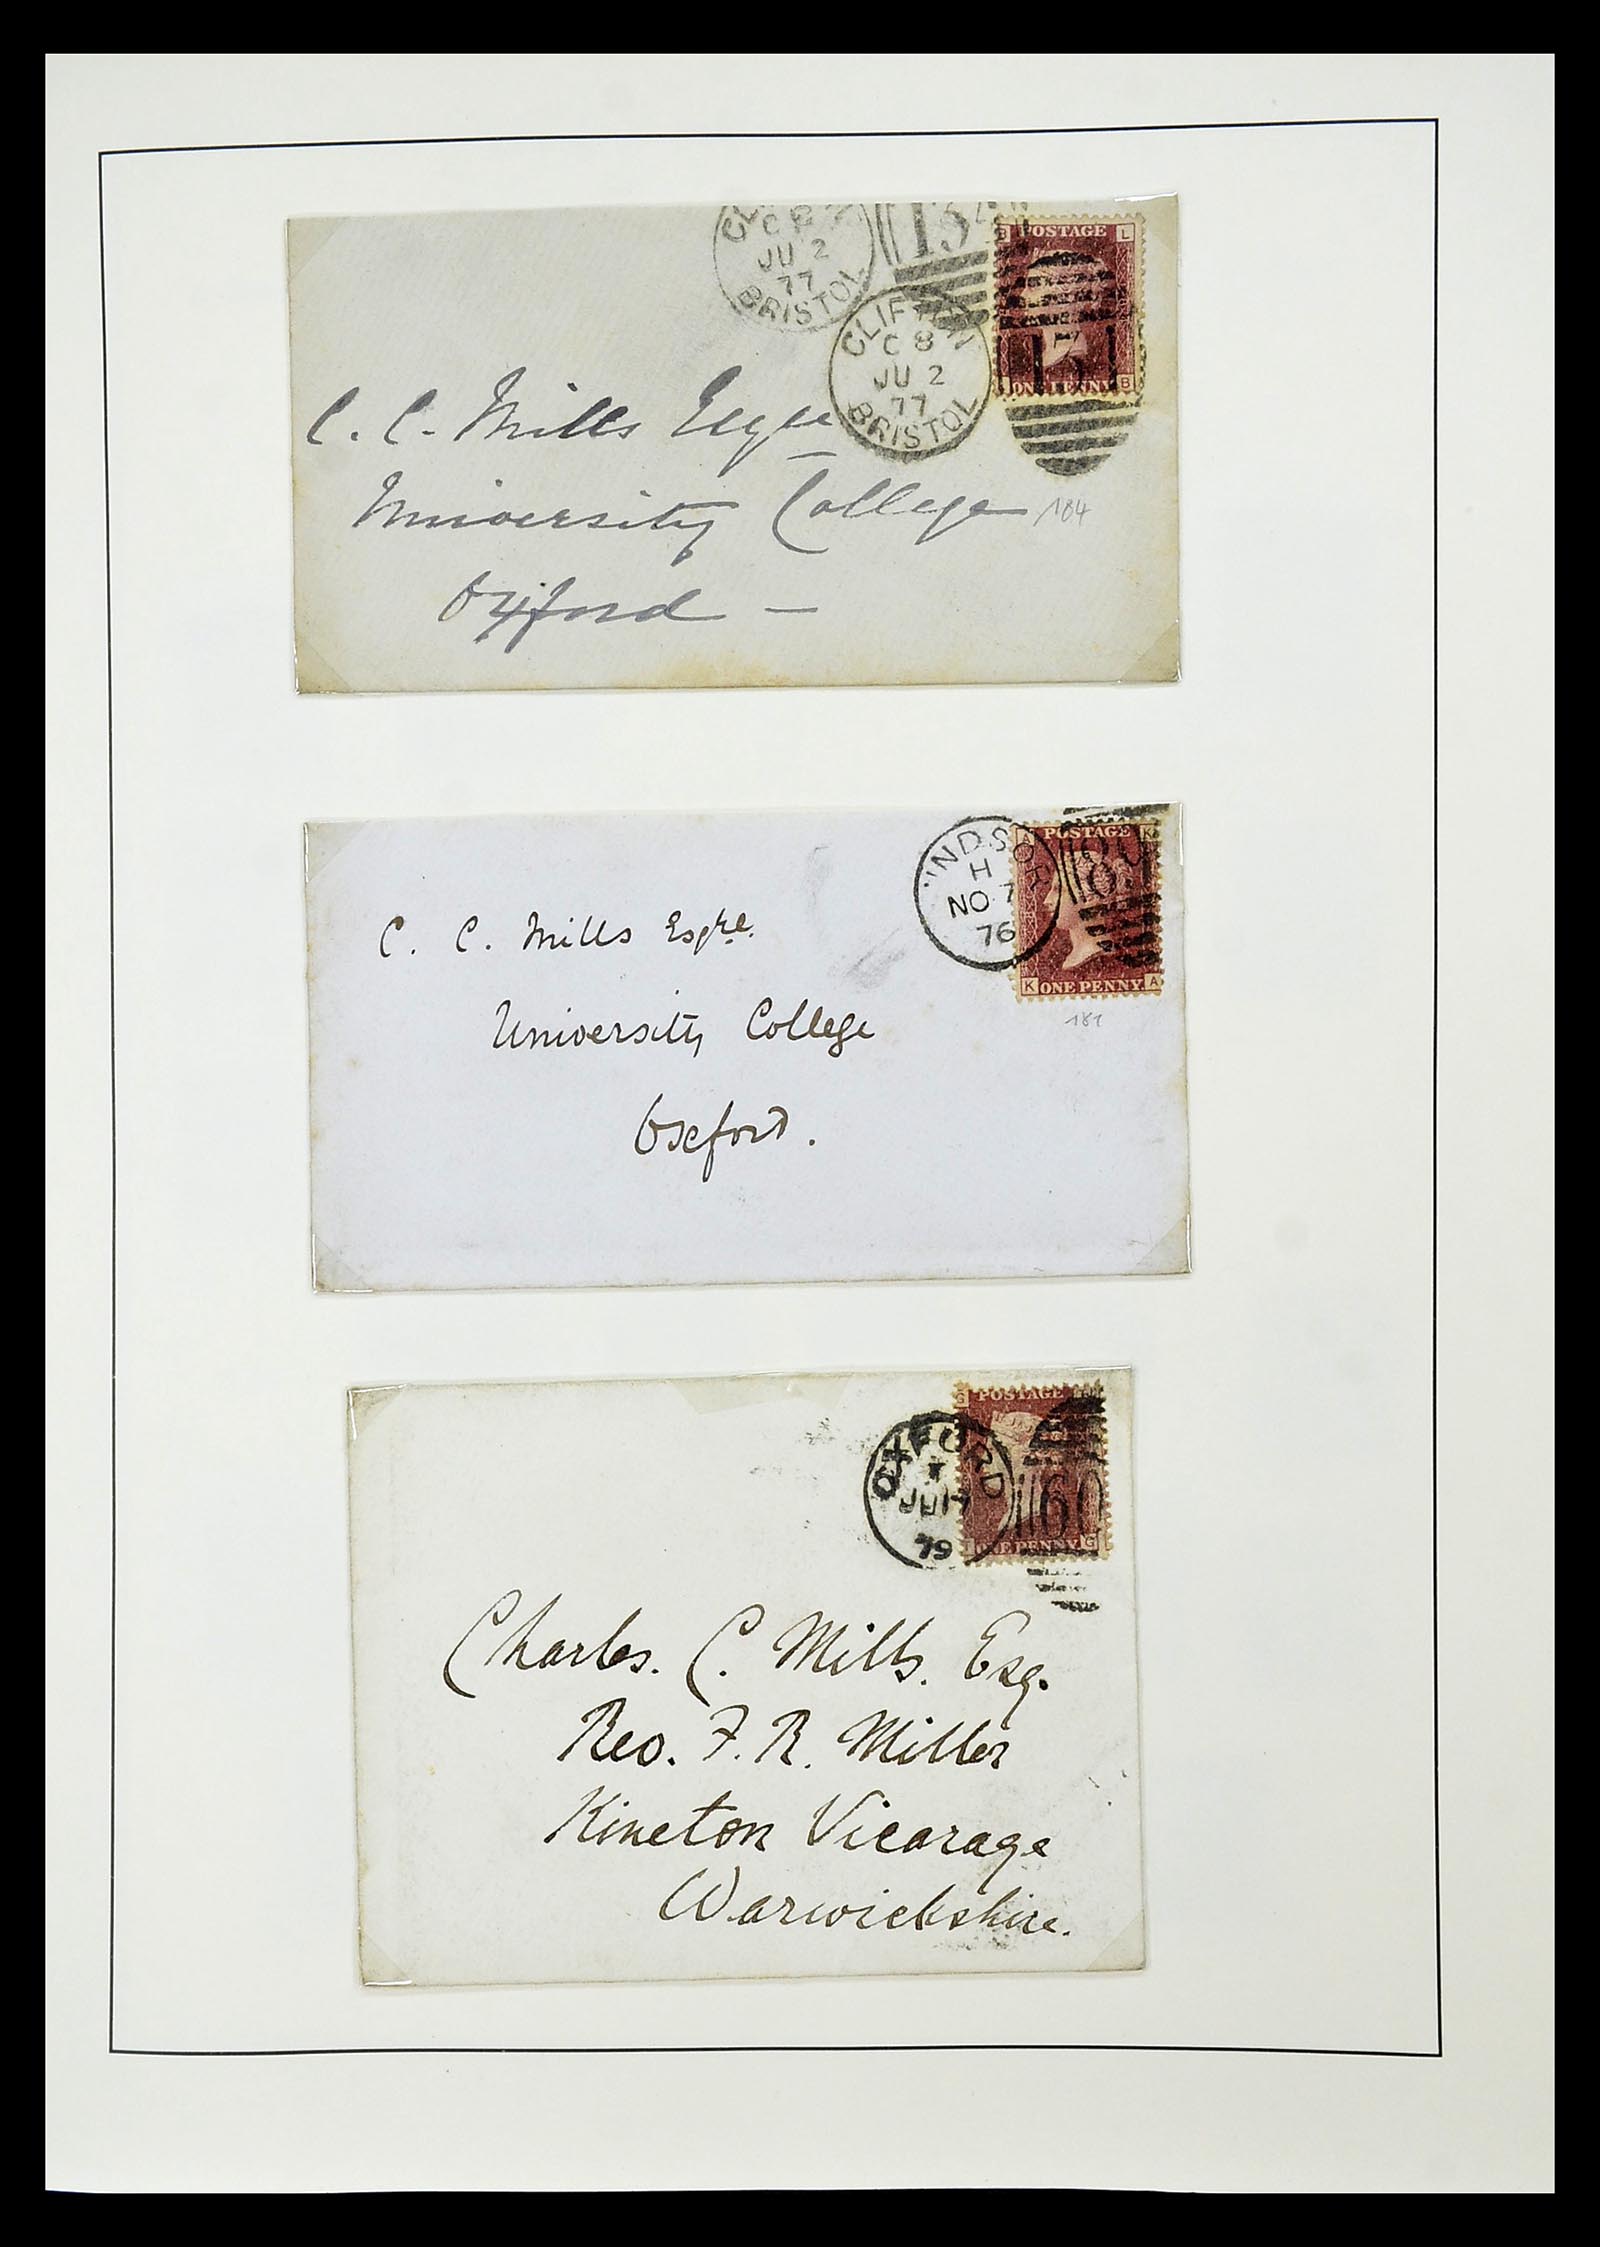 CLIFTON
C 8
JU 2
77
BRISTOL
134
CLIFTON
C 8
JU 2
77
BRISTOL
B POSTAGE L
ONE PENNY B
C. C. Mills Esqre
University College
184
Oxford —
INDSOR
H
NO 7
76
A POSTAGE K
K ONE PENNY A
C. C. Mills Esqre.
University College
Oxford.
OXFORD
JU 17
79
G POSTAGE
60
ONE PENNY G
Charles. C. Mills. Esq.
Rev. F. R. Miller
Kineton Vicarage
Warwickshire.